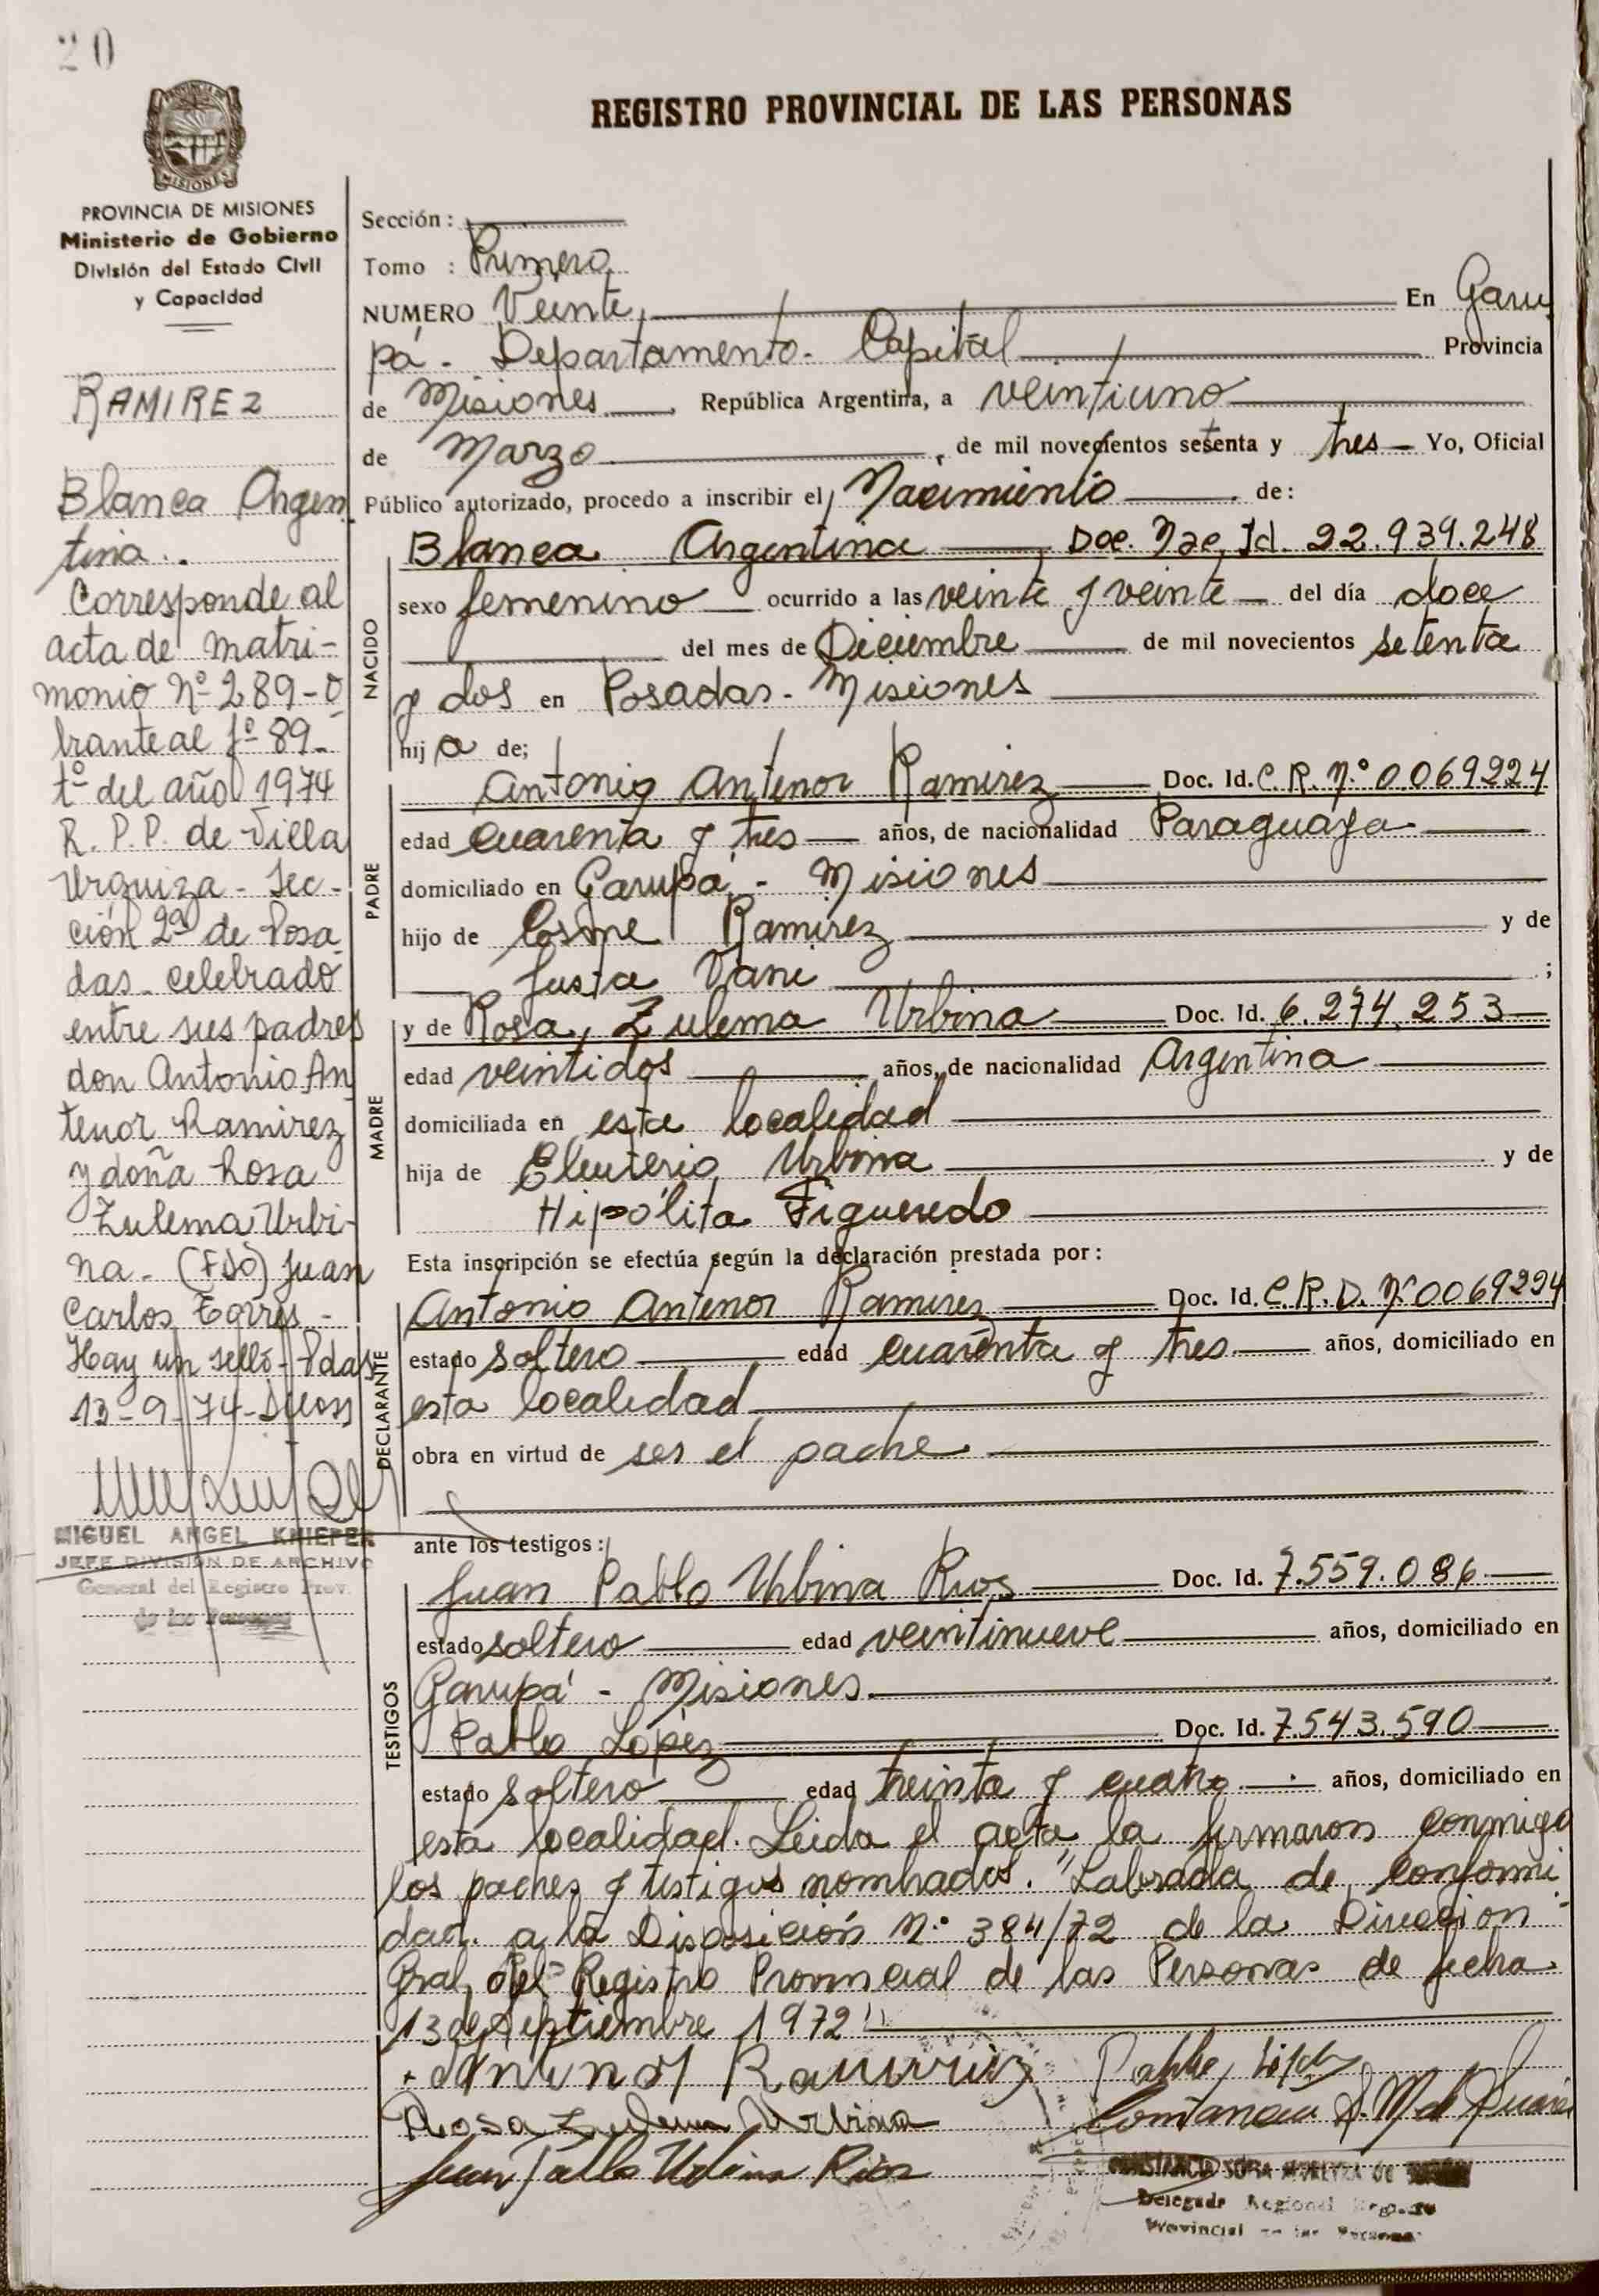 20
REGISTRO PROVINCIAL DE LAS PERSONAS
MISIONES
PROVINCIA DE MISIONES
Ministerio de Gobierno
División del Estado Civil
y Capacidad
RAMIREZ
Blanca Argen
tina..
Corresponde al
acta de matri-
monio Nº 289-O
brante al fº 89-
tº del año 1974
R. P. P. de Villa
Urquiza - Sec-
ción 2ª de Posa
das - celebrado
entre sus padres
don Antonio An
tenor Ramirez
y doña Rosa
Zulema Urbi-
na - (Fdo) Juan
Carlos Torres -
Hay un sello - Pdas
13-9-74-
MIGUEL ANGEL KNIEPER
JEFE DIVISIÓN DE ARCHIVO
General del Registro Prov.
de las Personas
Sección :
Tomo : Primero
NUMERO Veinte, En Garu
pá - Departamento - Capital Provincia
de Misiones República Argentina, a veintiuno
de Marzo, de mil novecientos setenta y tres - Yo, Oficial
Público autorizado, procedo a inscribir el Nacimiento de:
NACIDO
Blanca Argentina Doc. Nac. Id. 22.939.248
sexo femenino ocurrido a las veinte y veinte del día doce
del mes de Diciembre de mil novecientos setenta
y dos en Posadas - Misiones
hij a de;
PADRE
Antonio Antenor Ramirez Doc. Id. C. R. N.º 0.069224
edad cuarenta y tres años, de nacionalidad Paraguaya
domiciliado en Garupá - Misiones
hijo de Cosme Ramirez y de
Justa Vani ;
MADRE
y de Rosa, Zulema Urbina Doc. Id. 6.274.253
edad veintidos años, de nacionalidad Argentina
domiciliada en esta localidad
hija de Eleuterio Urbina y de
Hipólita Figueredo
Esta inscripción se efectúa según la declaración prestada por :
DECLARANTE
Antonio Antenor Ramirez Doc. Id. C. R. D. Nº 0069224
estado soltero edad cuarenta y tres años, domiciliado en
esta localidad
obra en virtud de ser el padre
ante los testigos :
TESTIGOS
Juan Pablo Urbina Rios Doc. Id. 7.559.086
estado soltero edad veintinueve años, domiciliado en
Garupá - Misiones.
Pablo López Doc. Id. 7.543.590
estado soltero edad treinta y cuatro años, domiciliado en
esta localidad. Leida el acta, la firmaron conmigo
los padres y testigos nombrados. "Labrada de conformi
dad. a la Disposición N.º 384/72 de la Dirección
Gral, del Registro Provincial de las Personas de fecha
13 de Septiembre 1972"
Antenor Ramirez Pablo López
Rosa Zulema Urbina
Juan Pablo Urbina Rios
Delegada Regional
Provincial